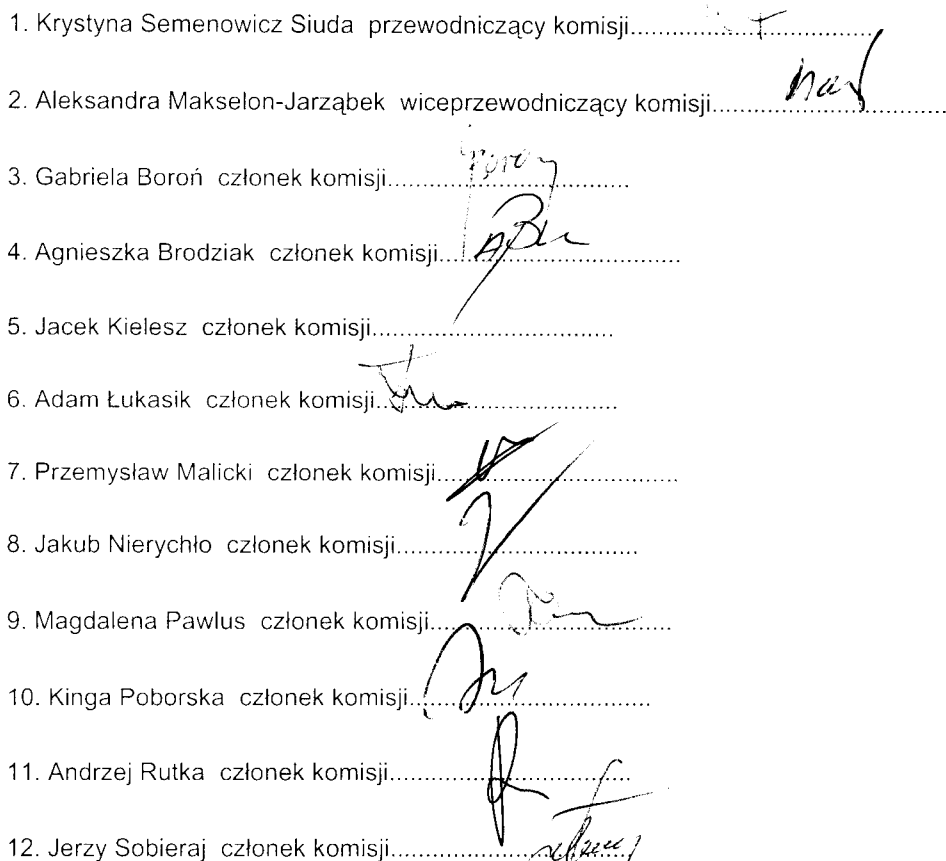 1. Krystyna Semenowicz Siuda przewodniczący komisji..............................
2. Aleksandra Makselon-Jarząbek wiceprzewodniczący komisji..............................
3. Gabriela Boroń członek komisji..............................
4. Agnieszka Brodziak członek komisji..............................
5. Jacek Kielesz członek komisji..............................
6. Adam Łukasik członek komisji..............................
7. Przemysław Malicki członek komisji..............................
8. Jakub Nierychło członek komisji..............................
9. Magdalena Pawlus członek komisji..............................
10. Kinga Poborska członek komisji..............................
11. Andrzej Rutka członek komisji..............................
12. Jerzy Sobieraj członek komisji..............................